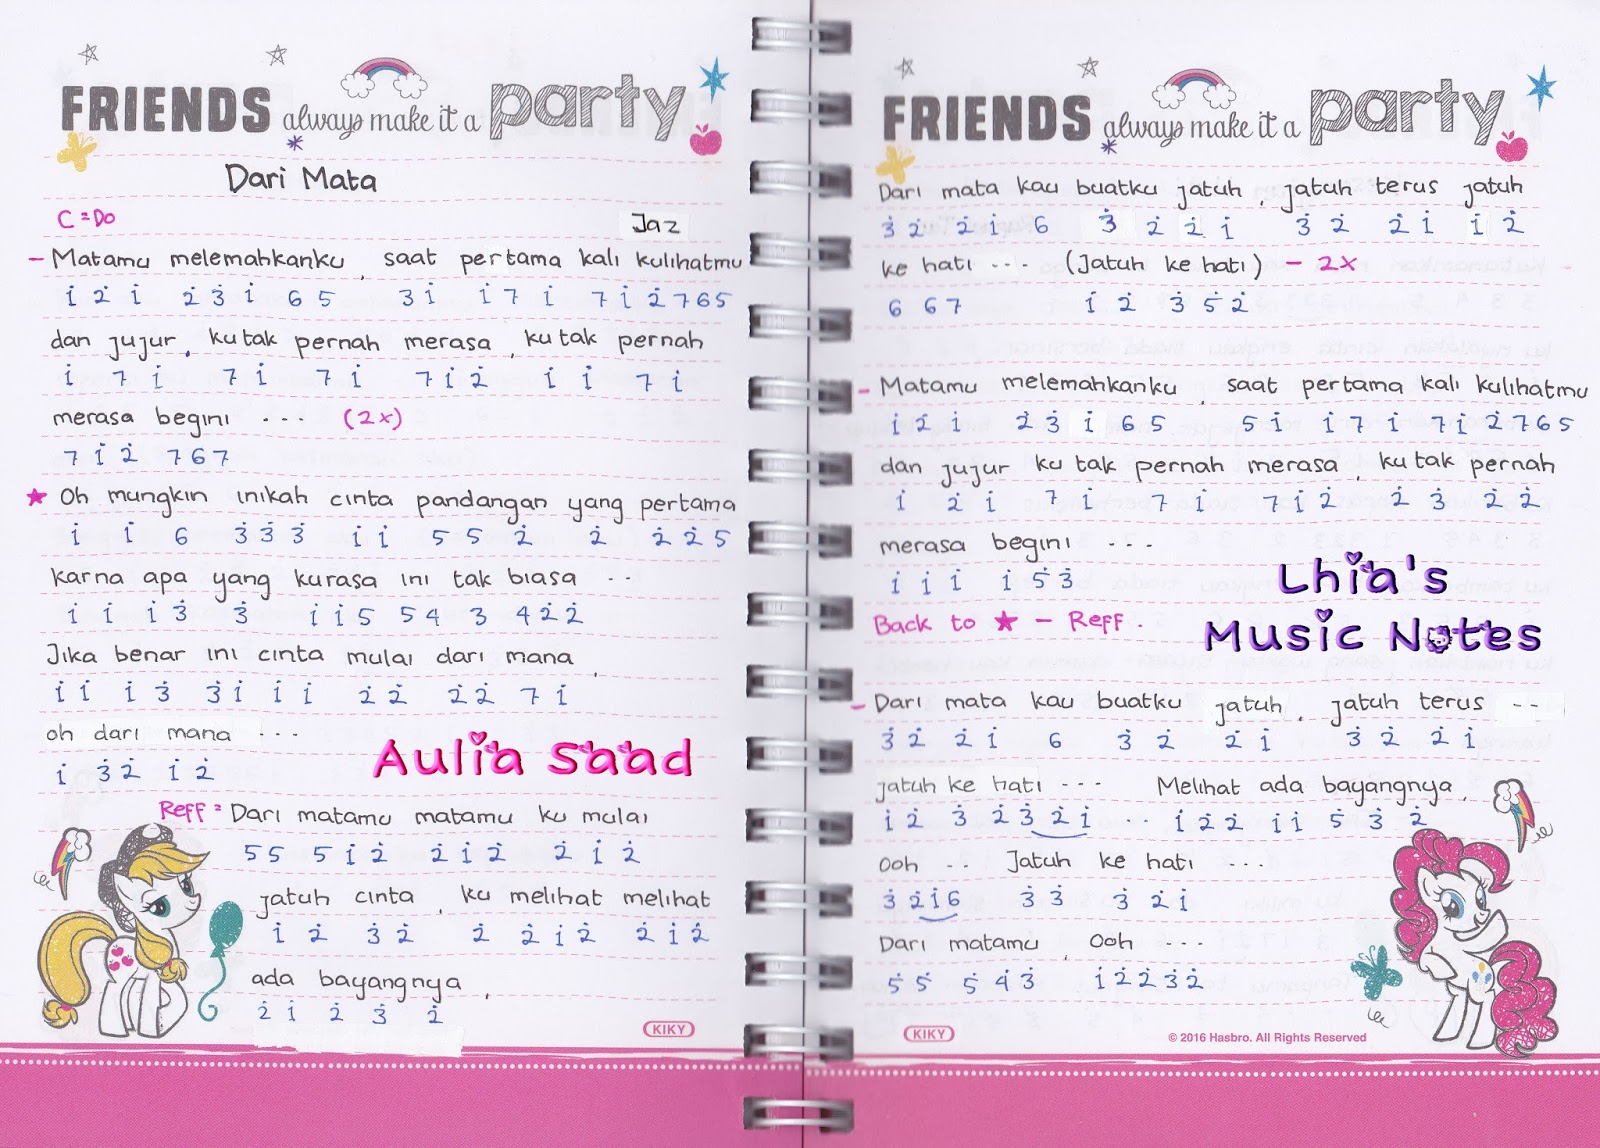 FRIENDS always make it a party
Dari Mata
C = Do
Jaz
- Matamu melemahkanku, saat pertama kali kulihatmu
i̇ 2̇ i̇ 2̇ 3̇ i̇ 6 5 3̇ i̇ i̇ 7 i̇ 7 i̇ 2̇ 7 6 5
dan jujur, ku tak pernah merasa, ku tak pernah
i̇ 7 i̇ 7 i̇ 7 i̇ 7 i̇ 2̇ i̇ i̇ 7 i̇
merasa begini ... (2x)
7 i̇ 2̇ 7 6 7
★ Oh mungkin inikah cinta pandangan yang pertama
i̇ i̇ 6 3̇ 3̇ 3̇ i̇ i̇ 5 5 2̇ 2̇ 2̇ 2̇ 5
karna apa yang kurasa ini tak biasa ..
i̇ i̇ i̇ 3̇ 3̇ i̇ i̇ 5 5 4 3 4 2̇ 2̇
Jika benar ini cinta mulai dari mana,
i̇ i̇ i̇ 3̇ 3̇ i̇ i̇ i̇ 2̇ 2̇ 2̇ 2̇ 7 i̇
oh dari mana ...
i̇ 3̇ 2̇ i̇ 2̇
Aulia Saad
Reff = Dari matamu matamu ku mulai
5 5 5 i̇ 2̇ 2̇ i̇ 2̇ 2̇ i̇ 2̇
jatuh cinta, ku melihat melihat
i̇ 2̇ 3̇ 2̇ 2̇ 2̇ i̇ 2̇ 2̇ i̇ 2̇
ada bayangnya,
2̇ i̇ 2̇ 3̇ 2̇
KIKY
FRIENDS always make it a party
Dari mata kau buatku jatuh, jatuh terus jatuh
3̇ 2̇ 2̇ i̇ 6 3̇ 2̇ 2̇ i̇ 3̇ 2̇ 2̇ i̇ i̇ 2̇
ke hati ... (Jatuh ke hati) - 2x
6 6 7 i̇ 2̇ 3̇ 5̇ 2̇
- Matamu melemahkanku, saat pertama kali kulihatmu
i̇ 2̇ i̇ 2̇ 3̇ i̇ 6 5 5 i̇ i̇ 7 i̇ 7 i̇ 2̇ 7 6 5
dan jujur ku tak pernah merasa, ku tak pernah
i̇ 2̇ i̇ 7 i̇ 7 i̇ 7 i̇ 2̇ 2̇ 3̇ 2̇ 2̇
merasa begini ...
i̇ i̇ i̇ i̇ 5̇ 3̇
Lhia's
Music Notes
Back to ★ - Reff.
- Dari mata kau buatku jatuh, jatuh terus --
3̇ 2̇ 2̇ i̇ 6 3̇ 2̇ 2̇ i̇ 3̇ 2̇ 2̇ i̇
jatuh ke hati ... Melihat ada bayangnya,
i̇ 2̇ 3̇ 2̇ 3̇ 2̇ i̇ i̇ 2̇ 2̇ i̇ i̇ 5̇ 3̇ 2̇
Ooh .. Jatuh ke hati ...
3̇ 2̇ i̇ 6 3̇ 3̇ 3̇ 2̇ i̇
Dari matamu, Ooh ...
5̇ 5̇ 5̇ 4̇ 3̇ i̇ 2̇ 2̇ 3̇ 2̇
KIKY
© 2016 Hasbro. All Rights Reserved